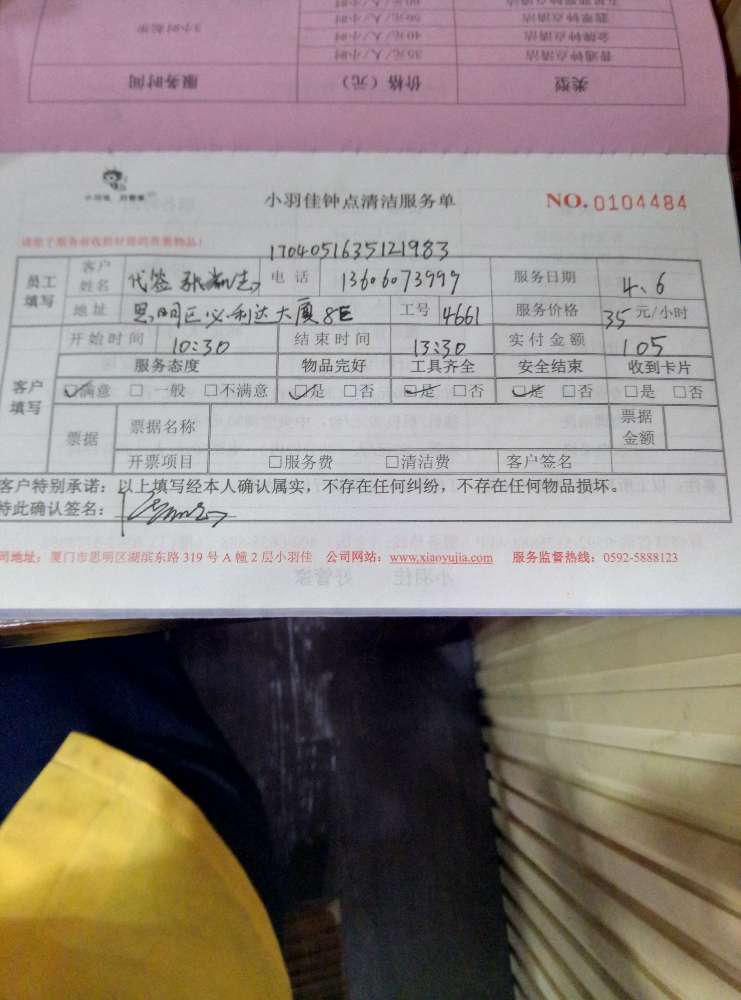 3小时起步
60元/人/小时
50元/人/小时
翡翠钟点清洁
40元/人/小时
金牌钟点清洁
35元/人/小时
普通钟点清洁
服务时间 价格（元） 类型
小羽佳 好管家
小羽佳钟点清洁服务单 NO. 0104484
1704051635121983
员工填写 客户姓名 代签 电话 13606073999 服务日期 4.6
地址 思明区必利达大厦8E 工号 4661 服务价格 35 元/小时
客户填写 开始时间 10:30 结束时间 13:30 实付金额 105
服务态度 物品完好 工具齐全 安全结束 收到卡片
☑满意 □一般 □不满意 ☑是 □否 ☑是 □否 ☑是 □否 □是 □否
票据 票据名称 票据金额
开票项目 □服务费 □清洁费 客户签名
客户特别承诺：以上填写经本人确认属实，不存在任何纠纷，不存在任何物品损坏。
特此确认签名：
司地址：厦门市思明区湖滨东路 319 号 A 幢 2 层小羽佳 公司网站：www.xiaoyujia.com 服务监督热线：0592-5888123